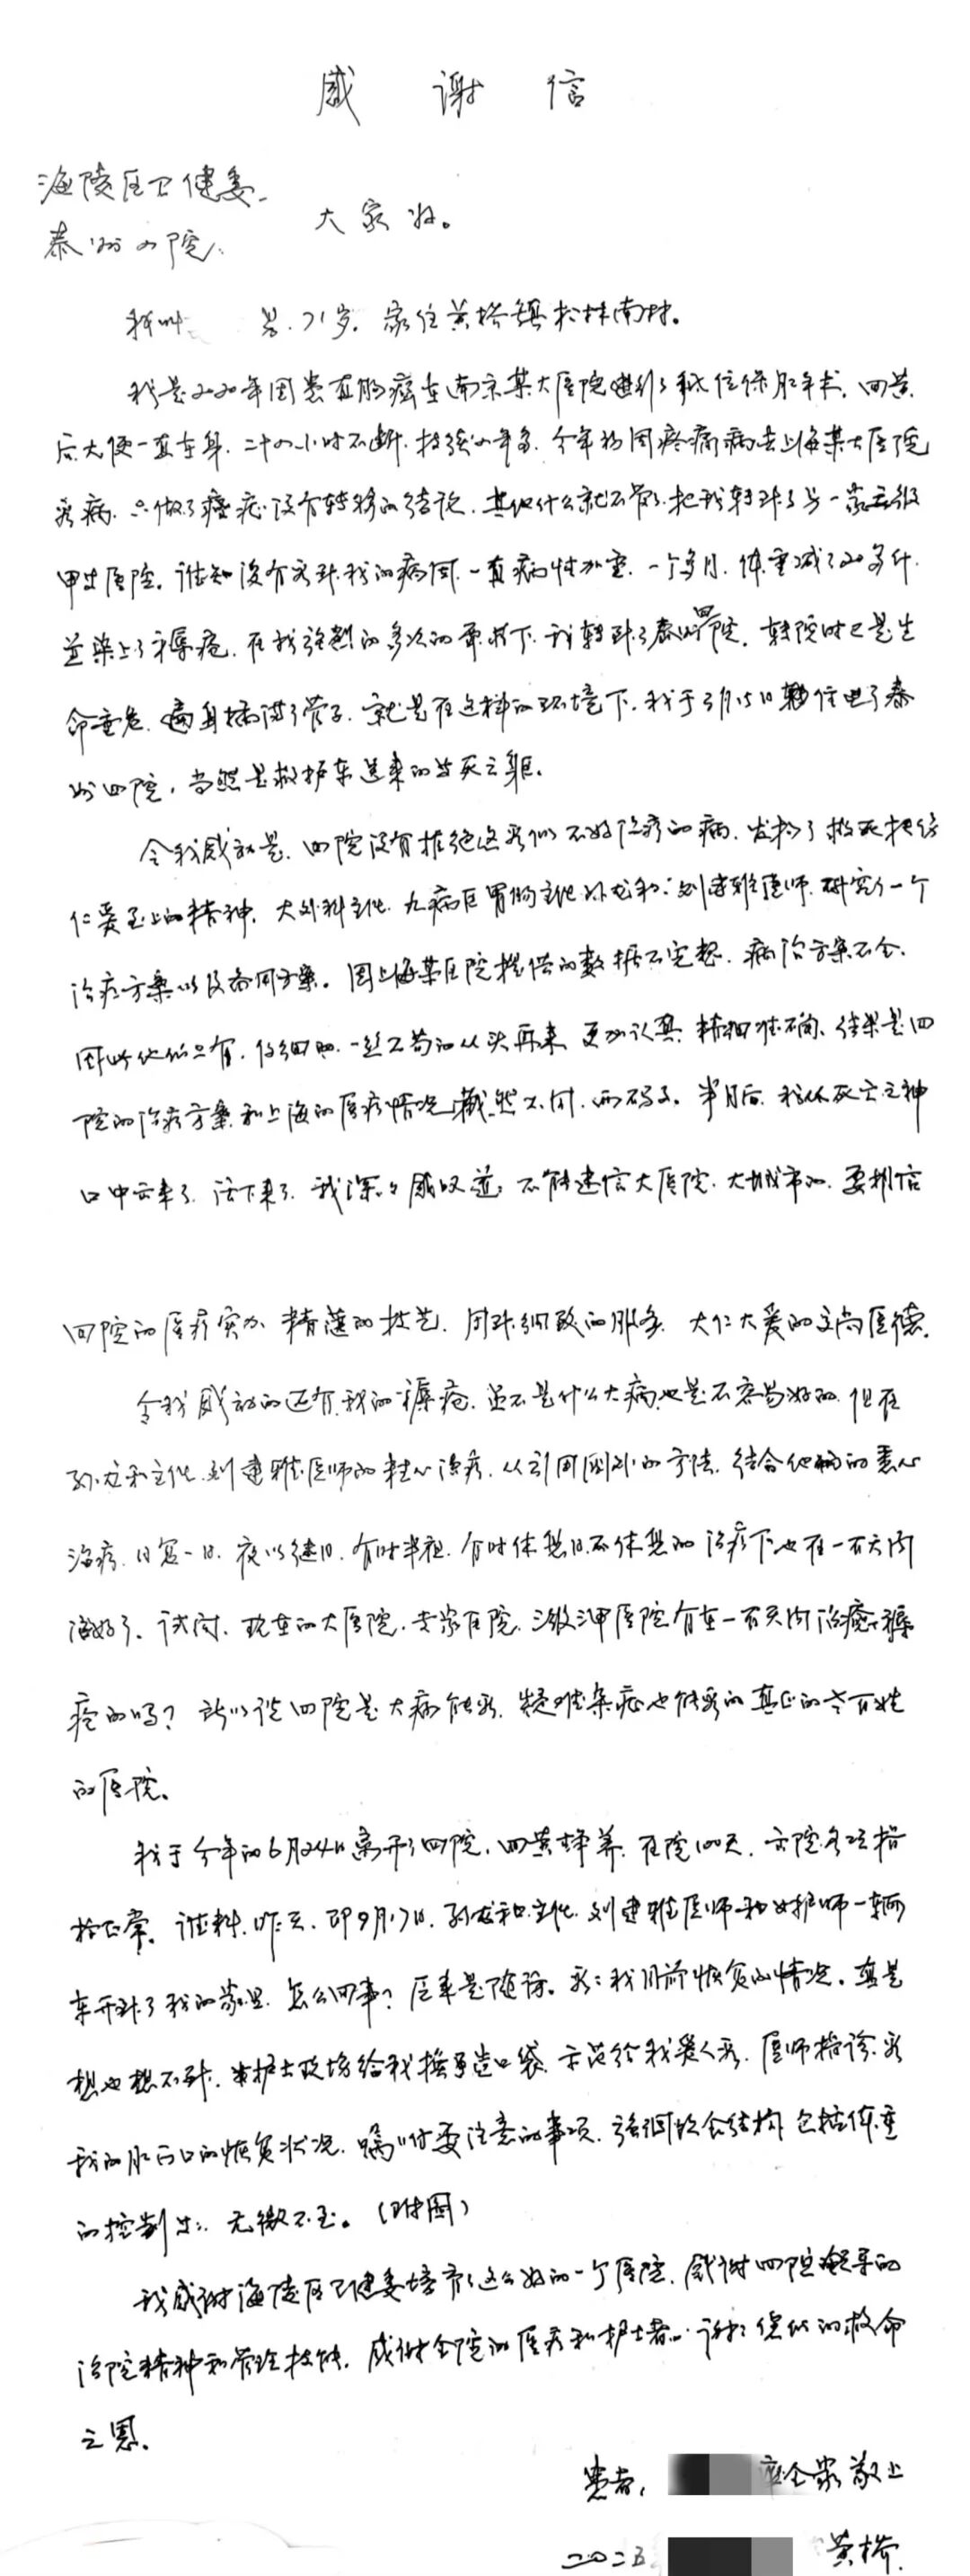 感 谢 信
海陵区卫健委、
泰州四院：
大家好。
我叫 男.71岁.家住黄桥镇松林南村。
我是2020年因患直肠癌在南京某大医院进行了低位保肛手术.回黄
后大便一直在身.二十四小时不断.持续四年多.今年初因疼痛病去上海某大医院
看病.只做了癌症没有转移的结论.其他什么就不管.把我转到了另一家三级
甲等医院。谁知没有看到我的病因.一直病性加重.一个多月.体重减了20多斤.
并染上了褥疮.在我强烈的多次的要求下.我转到了泰州四院.转院时已是生
命垂危.遍身插满了管子.就是在这样的环境下.我于3月15日转住进了泰
州四院,当然是救护车送来的当死之躯.
令我感动是.四院没有拒绝这看似不好治疗的病.发扬了救死扶伤
仁爱至上的精神.大外科主任.九病区胃肠主任孙龙和:刘建雅医师.研究了一个
治疗方案以及备用方案。因上海某医院提供的数据不完整.病治方案不全.
因此他们只有.仔细的.一丝不苟的从头再来.更加认真.精细准确.结果是四
院的治疗方案和上海的医疗情况截然不同.两码子.半月后.我从死亡之神
口中去来了.活下来了.我深深感叹道:不能迷信大医院.大城市的.要相信
四院的医疗实力.精湛的技艺.周到细致的服务.大仁大爱的高尚医德.
令我感动的还有我的褥疮.虽不是什么大病也是不容易好的.但在
孙龙和主任.刘建雅医师的精心治疗.从引用国外的方法.结合他的悉心
治疗.日复一日.夜以继日.有时半夜.有时休息日不休息的治疗下也在一百天内
治好了。试问.现在的大医院.专家医院.三级三甲医院有在一百天内治癒褥
疮的吗?所以说四院是大病能看.疑难杂症也能看的真正的老百姓
的医院。
我于今年的6月24日离开了四院,回黄静养.在院100天.出院各项指
标正常。谁料.昨天.即9月17日.孙龙和主任.刘建雅医师和女护师一辆
车开到了我的家里.怎么回事?原来是随访。看看我目前恢复的情况。真是
想也想不到.女护士现场给我换了造口袋.示范给我爱人看.医师指诊.看
我的肛门口的恢复状况.嘱咐要注意的事项.强调饮食结构.包括体重
的控制等.无微不至。(附图)
我感谢海陵区卫健委培育了这么好的一个医院.感谢四院领导的
治院精神和管理技能.感谢全院的医疗和护士者.谢谢您们的救命
之恩。
患者, 全家敬上
2025 黄桥.